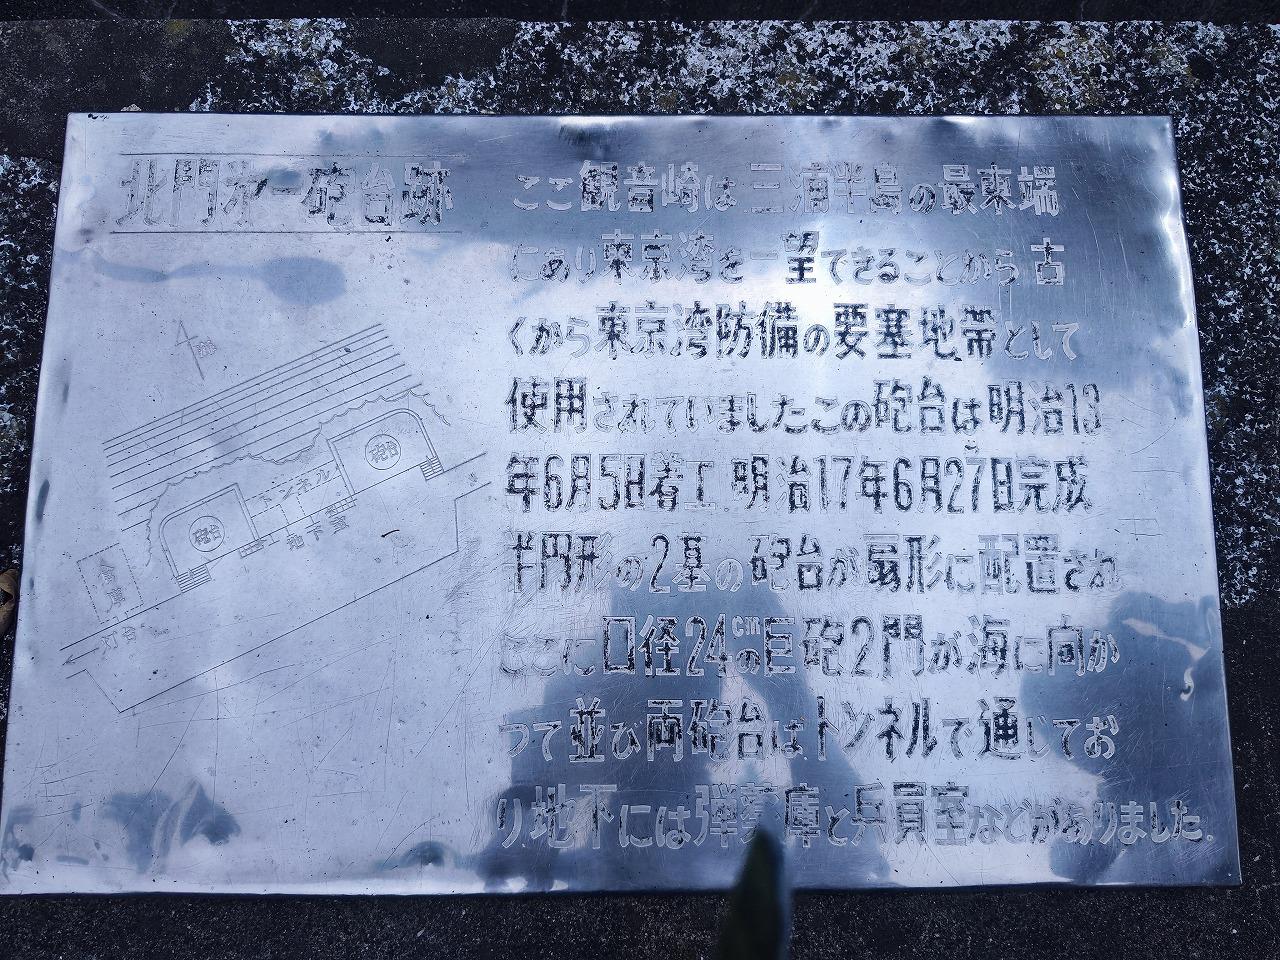 北門第一砲台跡
ここ観音崎は三浦半島の最東端
にあり東京湾を一望できることから古
くから東京湾防備の要塞地帯として
使用されていましたこの砲台は明治13
年6月5日着工 明治17年6月27日完成
半円形の2基の砲台が扇形に配置され
ここに口径24cmの巨砲2門が海に向か
つて並び両砲台はトンネルで通じてお
り地下には弾薬庫と兵員室などがありました.
砲台
トンネル
砲台
地下室
灯台へ